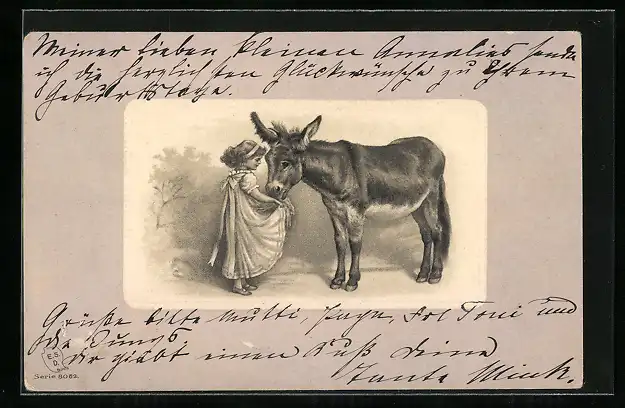 Meiner lieben kleinen Annelies sende
ich die herzlichsten Glückwünsche zu Ihrem
Geburtstage.
Grüße bitte Mutti, Papa, Toni und
die Jungs.
Dir giebt einen Kuß Deine
Tante Mink.
E.S.
D.
Serie 8062.